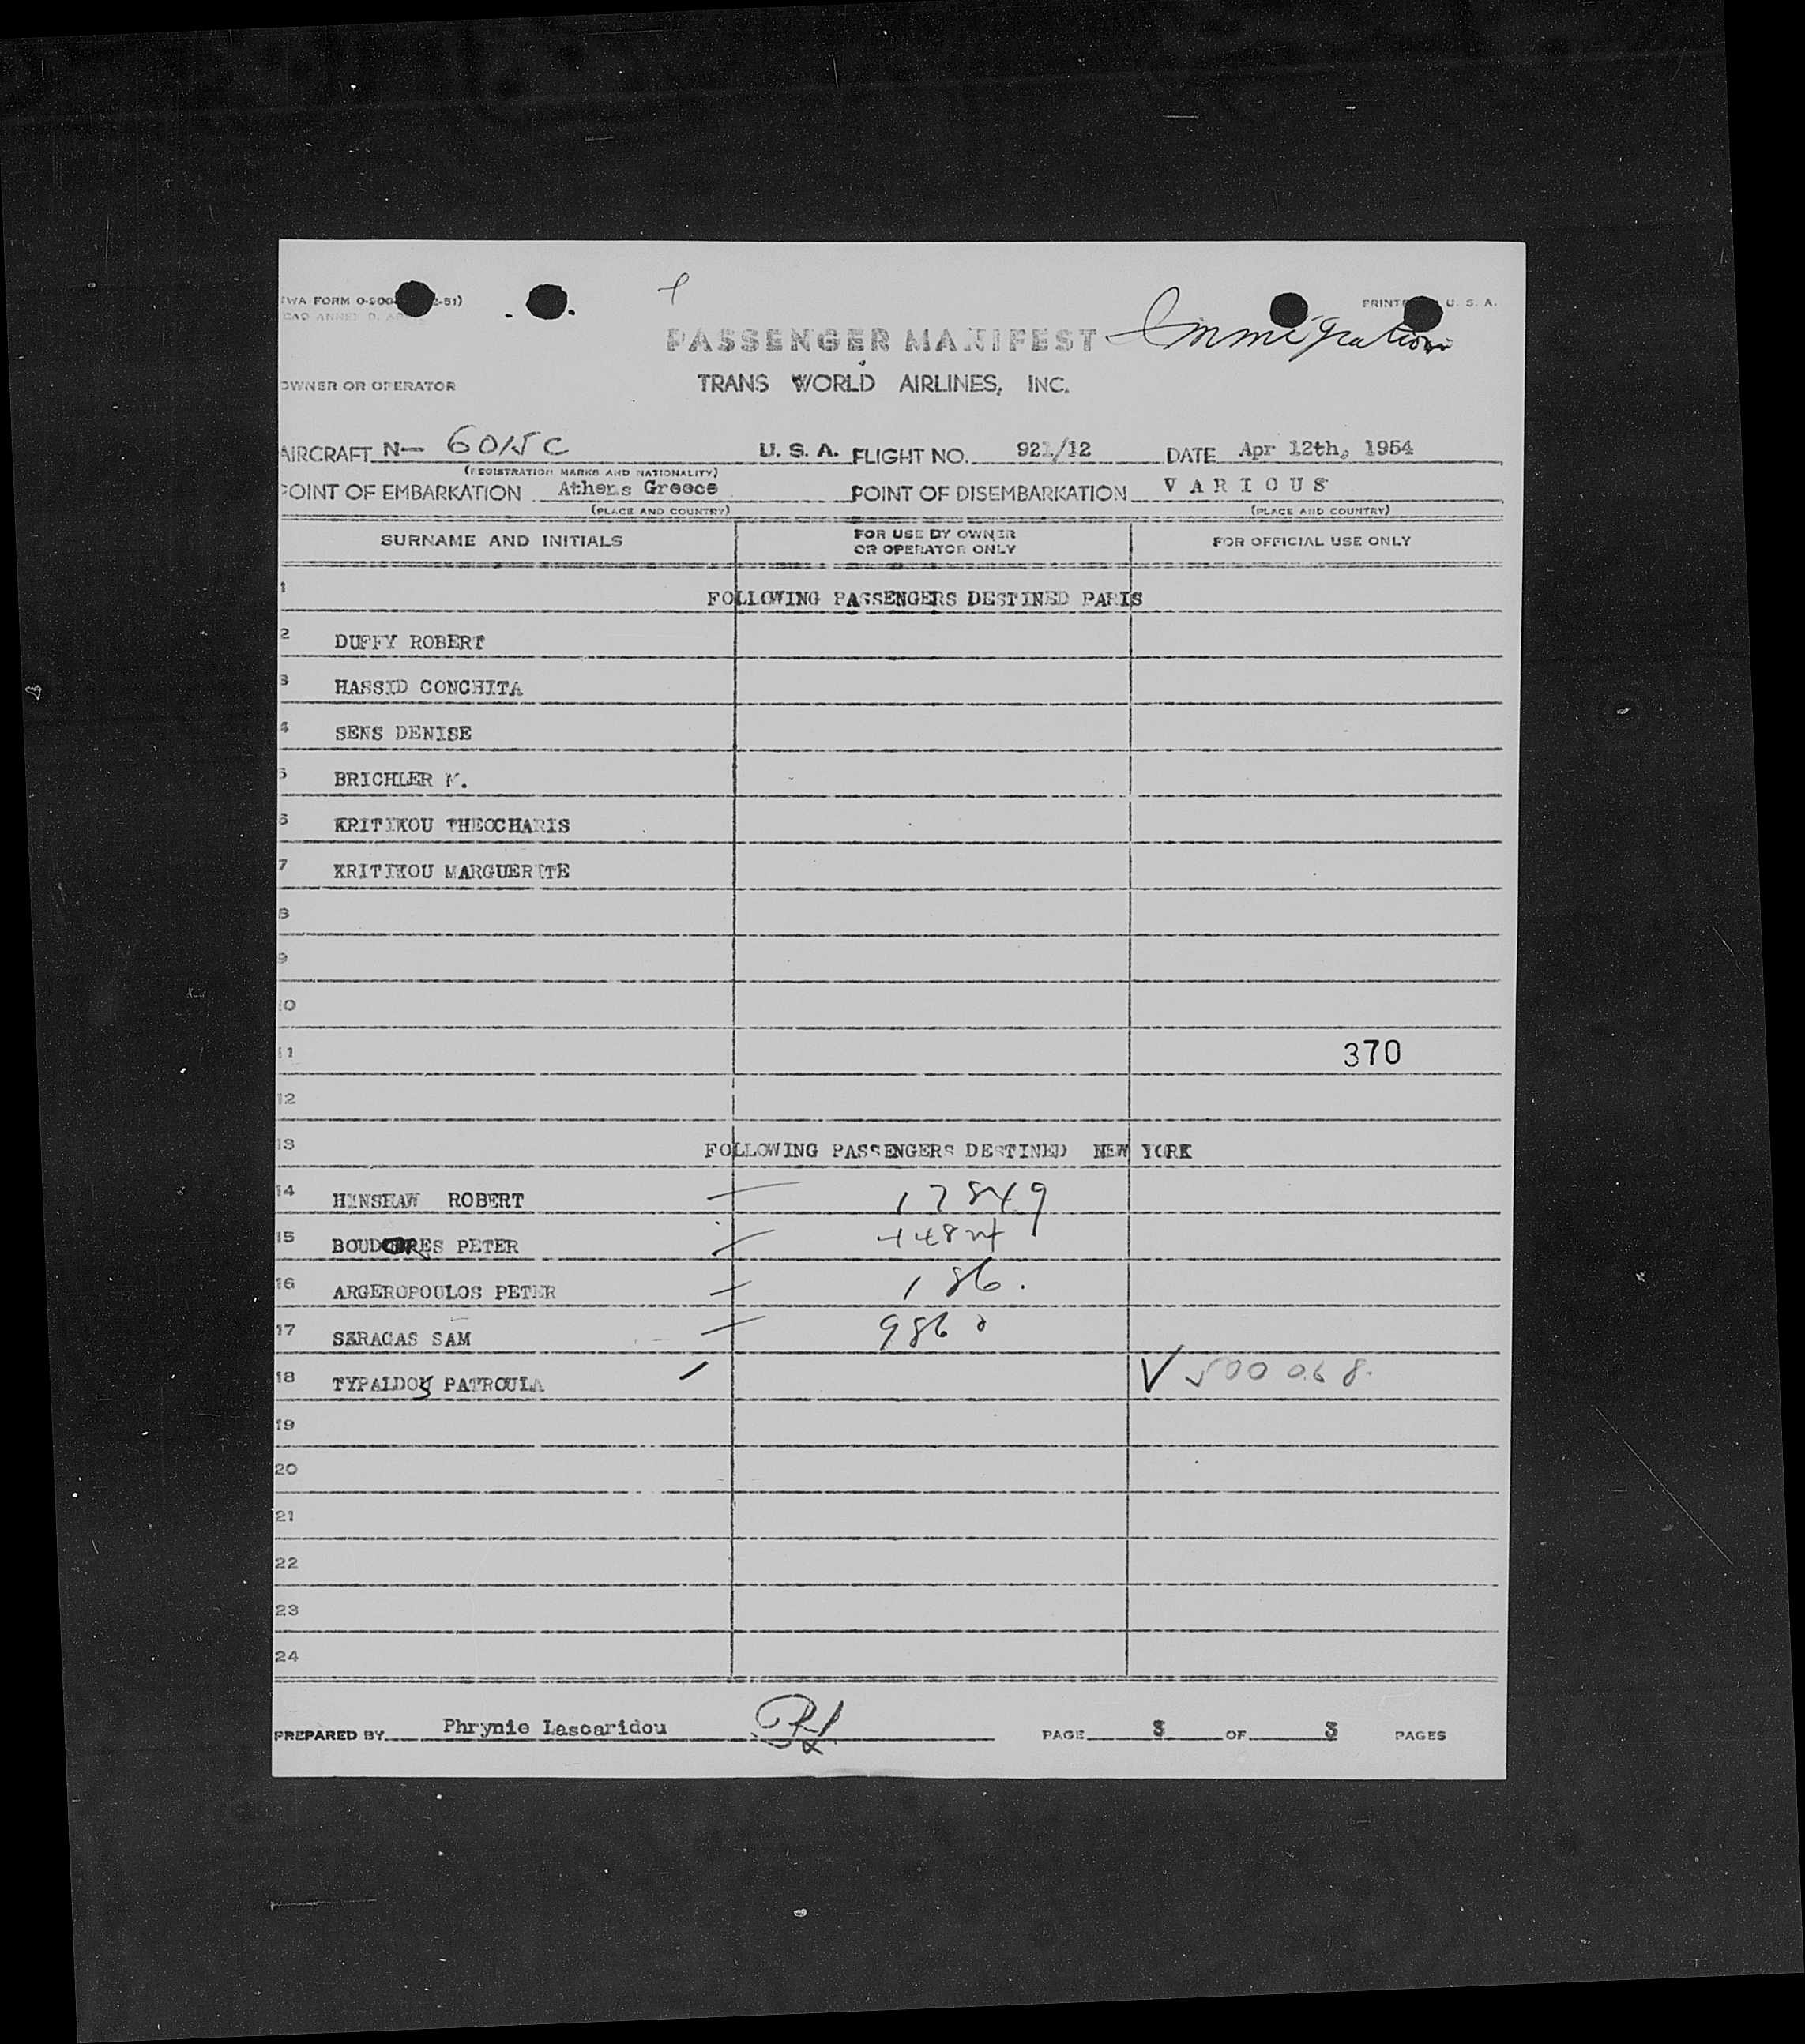 TWA FORM O-200
PRINTED U. S. A.
PASSENGER MANIFEST Immigration
OWNER OR OPERATOR TRANS WORLD AIRLINES, INC.
AIRCRAFT N- 6015C U. S. A. FLIGHT NO. 921/12 DATE Apr 12th, 1954
(REGISTRATION MARKS AND NATIONALITY)
POINT OF EMBARKATION Athens Greece POINT OF DISEMBARKATION VARIOUS
(PLACE AND COUNTRY) (PLACE AND COUNTRY)
SURNAME AND INITIALS FOR USE BY OWNER OR OPERATOR ONLY FOR OFFICIAL USE ONLY
1 FOLLOWING PASSENGERS DESTINED PARIS
2 DUFFY ROBERT
3 HASSID CONCHITA
4 SENS DENISE
5 BRICHLER M.
6 KRITIKOU THEOCHARIS
7 KRITIKOU MARGUERITE
8
9
10
11 370
12
13 FOLLOWING PASSENGERS DESTINED NEW YORK
14 HINSHAW ROBERT 17849
15 PETER
16 ARGEROPOULOS PETER 186.
17 SARAGAS SAM 9862
18 TYPALDOY PATROULA ✓ 500068.
19
20
21
22
23
24
PREPARED BY Phrynie Lascaridou PL PAGE 3 OF 3 PAGES